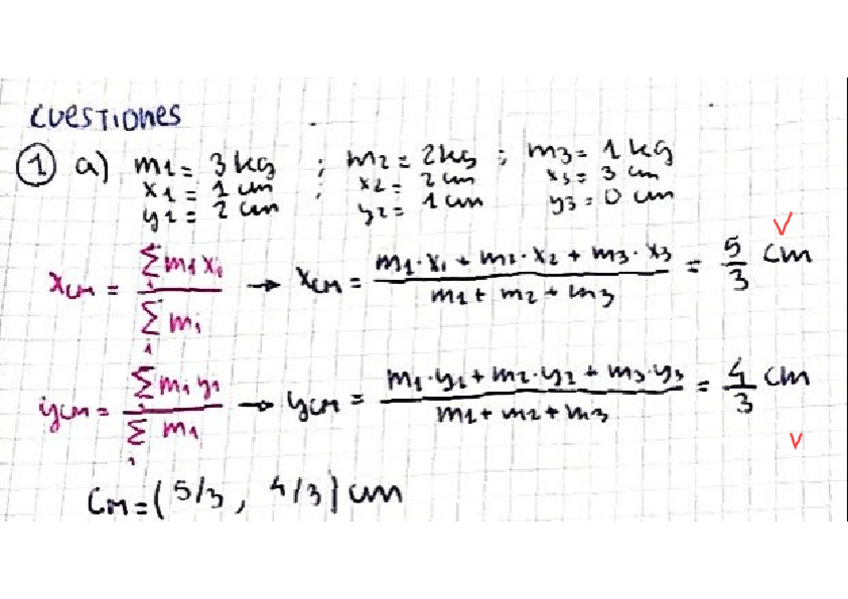 CUESTIONES
① a) m1 = 3 kg ; m2 = 2 kg ; m3 = 1 kg
x1 = 1 cm ; x2 = 2 cm x3 = 3 cm
y1 = 2 cm y2 = 1 cm y3 = 0 cm
xCM = Σi mi xi / Σi mi → xCM = m1·x1 + m2·x2 + m3·x3 / m1 + m2 + m3 = 5/3 cm
yCM = Σi mi yi / Σi mi → yCM = m1·y1 + m2·y2 + m3·y3 / m1 + m2 + m3 = 4/3 cm
CM = (5/3, 4/3) cm